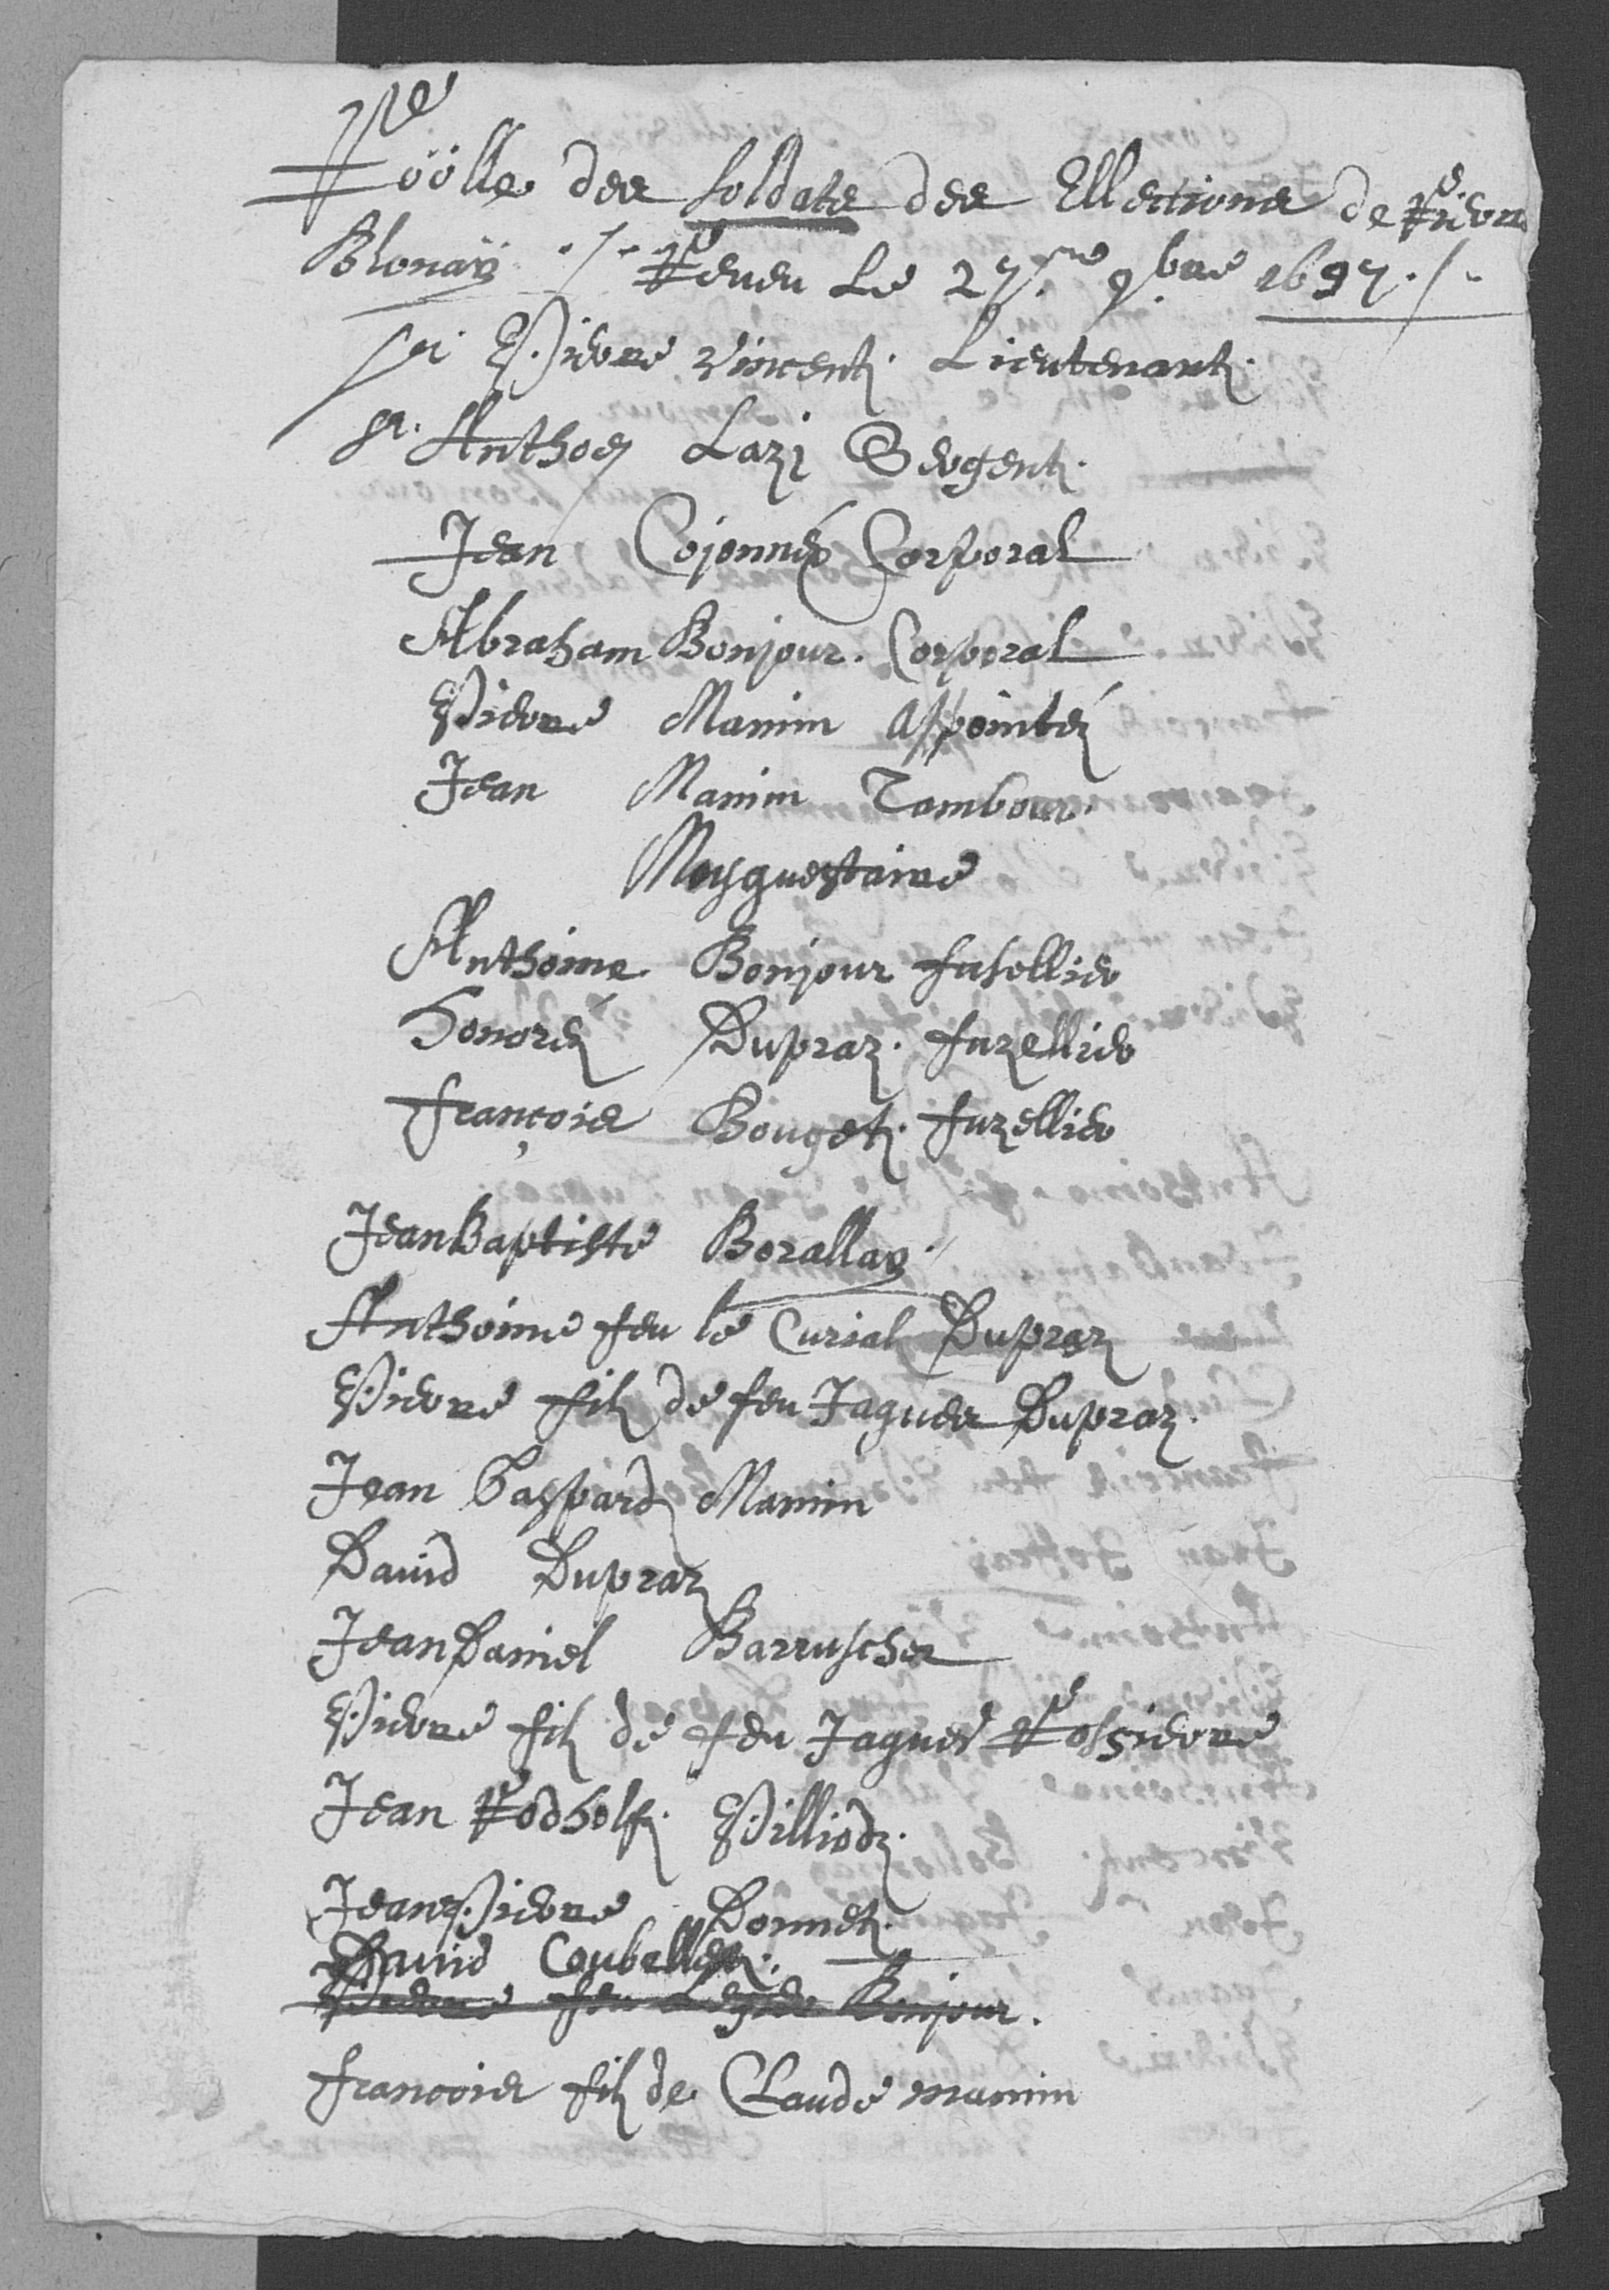 Röolle des soldats des Ellections de Rière
Blonaÿ ./. Reveu Le 27.me 9.bre 1697 ./.
Sr. Pierre Vincent. Lieutenant.
Sr. Anthoe Lazi Sergent.
Jean Cojonnex Corporal
Abraham Bonjour. Corporal
Pierre Mamin appointé
Jean Mamin Tambour.
Mosquestaire
Anthoine Bonjour fusellier
Honoré Dupraz. fuzellier
François Bouget. fuzellier
Jean Baptiste Borallay.
Anthoine feu le Curial Dupraz
Pierre filz de feu Jaques Dupraz.
Jean Gaspard Mamin
David Dupraz
Jean Daniel Barruschet
Pierre filz de feu Jaques Rossierre
Jean Rodholf. Pilliod.
Jean Pierre Bonnet.
David
Pierre feu Bonjour.
Francois filz de Claude mamin